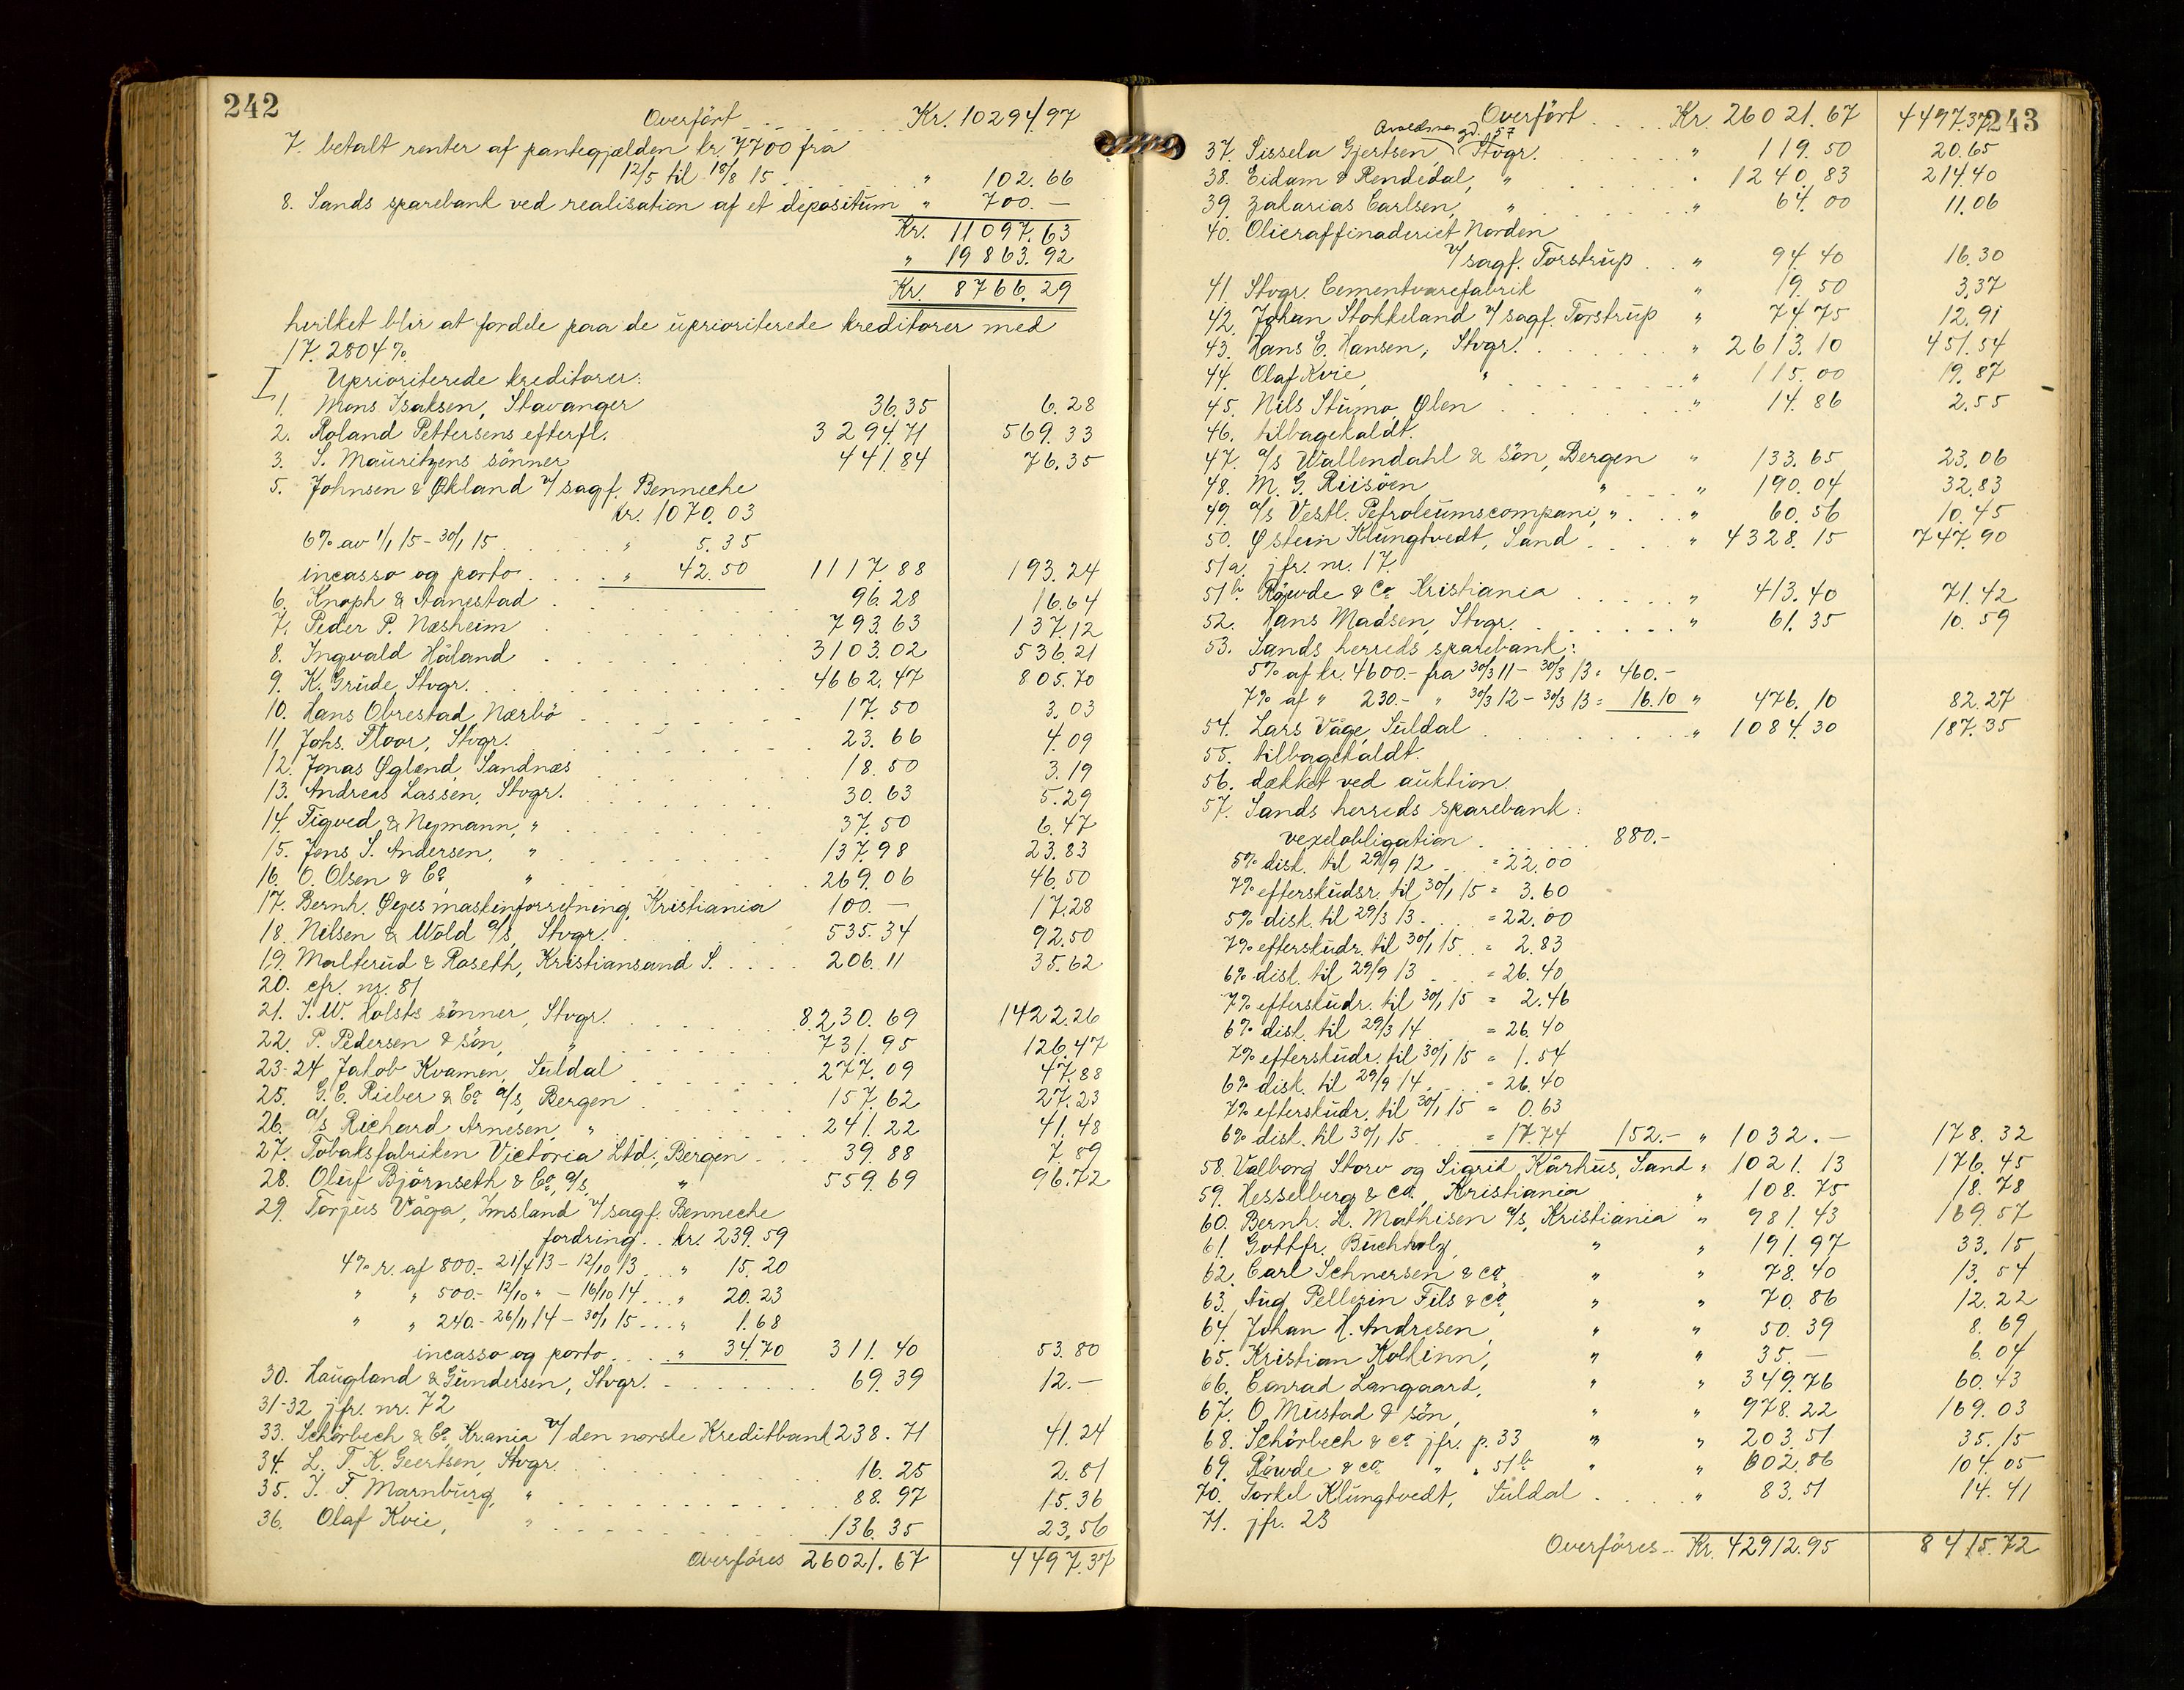 242
Overført Kr. 10294.97
7. betalt renter af pantegjælden kr. 7700 fra
12/5 til 18/8 15 " 102.66
8. Sands sparebank ved realisation af et depositum " 700.—
Kr. 11097.63
" 19863.92
Kr. 8766.29
hvilket blir at fordele paa de uprioriterede kreditorer med
17.2804%
I Uprioriterede kreditorer:
1. Mons Isaksen, Stavanger 36.35 6.28
2. Roland Pettersens efterfl. 3294.71 569.33
3. S. Mauritzens sönner 441.84 76.35
5. Johnsen & Økland v/ sagf. Benneche
kr. 1070.03
6% av 1/1 15 - 30/1 15 " 5.35
incasso og porto " 42.50 1117.88 193.24
6. Knoph & Aanestad 96.28 16.64
7. Peder P. Næsheim 793.63 137.12
8. Ingvald Håland 3103.02 536.21
9. K. Grude, Stvgr. 4662.47 805.70
10. Hans Obrestad, Nærbö 17.50 3.03
11. Johs. Floor, Stvgr. 23.66 4.09
12. Jonas Øglænd, Sandnæs 18.50 3.19
13. Andreas Lassen, Stvgr. 30.63 5.29
14. Figved & Nymann, " 37.50 6.47
15. Jens S. Andersen, " 137.98 23.83
16. O. Olsen & Co " 269.06 46.50
17. Bernh. Øyes maskinforretning, Kristiania 100.— 17.28
18. Nilsen & Wold a/s, Stvgr. 535.34 92.50
19. Malterud & Roseth, Kristiansand S. 206.11 35.62
20. cfr. nr. 81
21. T.W. Holsts sönner, Stvgr. 8230.69 1422.26
22. P. Pedersen & sön, " 731.95 126.47
23-24 Jakob Kvamen, Suldal 277.09 47.88
25. G.C. Rieber & Co a/s, Bergen 157.62 27.23
26. a/s Richard Arnesen, " 241.22 41.48
27. Tobaksfabriken Victoria Ltd., Bergen 39.88 7.89
28. Oluf Björnseth & Co, a/s, " 559.69 96.72
29. Torjus Våga, Imsland v/ sagf. Benneche
fordring kr. 239.59
4% r. af 800.- 21/4 13 - 12/10 13 " 15.20
" " 500.- 12/10 " - 16/10 14 " 20.23
" " 240.- 26/11 14 - 30/1 15 " 1.68
incasso og porto " 34.70 311.40 53.80
30. Haugland & Gundersen, Stvgr. 69.39 12.—
31-32 jfr. nr. 72
33. Schörbech & Co, Kr.ania v/ den norske Kreditbank 238.71 41.24
34. L. T. K. Geertsen, Stvgr. 16.25 2.81
35. I. F. Marnburg, " 88.97 15.36
36. Olaf Kvie, " 136.35 23.56
Overföres 26021.67 4497.37
243
Overført Kr. 26021.67 4497.37
gd. 57
37. Sissela Gjertsen, Stvgr. " 119.50 20.65
38. Eidam & Rendedal, " " 1240.83 214.40
39. Zakarias Carlsen, " " 64.00 11.06
40. Olieraffinaderiet Norden
v/ sagf. Torstrup " 94.40 16.30
41. Stvgr. Cementvarefabrik " 19.50 3.37
42. Johan Stokkeland v/ sagf. Torstrup " 74.75 12.91
43. Hans E. Hansen, Stvgr. " 2613.10 451.54
44. Olaf Kvie, " " 115.00 19.87
45. Nils Stumo, Ølen " 14.86 2.55
46. tilbagekaldt.
47. a/s Wallendahl & Sön, Bergen " 133.65 23.06
48. M. G. Riisöen " " 190.04 32.83
49. a/s Vestl. Petroleumscompani, " " 60.56 10.45
50. Østein Klungtvedt, Sand " 4328.15 747.90
51a. jfr. nr. 17.
51b. Röwde & Co Kristiania " 413.40 71.42
52. Hans Madsen, Stvgr. " 61.35 10.59
53. Sands herreds sparebank:
5% af kr. 4600.- fra 30/3 11 - 30/3 13 = 460.-
7% af " 230.- " 30/3 12 - 30/3 13 = 16.10 " 476.10 82.27
54. Lars Våge, Suldal " 1084.30 187.35
55. tilbagekaldt.
56. dækket ved auktion.
57. Sands herreds sparebank:
vexelobligation 880.-
5% disk. til 29/9 12 = 22.00
7% efterskudsr. til 30/1 15 = 3.60
5% disk. til 29/3 13 = 22.00
7% efterskudr. til 30/1 15 = 2.83
6% disk. til 29/9 13 = 26.40
7% efterskudr. til 30/1 15 = 2.46
6% disk. til 29/3 14 = 26.40
7% efterskudr. til 30/1 15 = 1.54
6% disk. til 29/9 14 = 26.40
7% efterskudr. til 30/1 15 = 0.63
6% disk. til 30/1 15 = 17.74 152.- " 1032.— 178.32
58. Valborg Storv og Sigrid Kårhus, Sand " 1021.13 176.45
59. Hesselberg & Co., Kristiania " 108.75 18.78
60. Bernh. L. Mathisen a/s, Kristiania " 981.43 169.57
61. Gottfr. Buchholz, " " 191.97 33.15
62. Carl Schnersen & Co, " " 78.40 13.54
63. Aug. Pellerin Fils & Co, " " 70.86 12.22
64. Johan H. Andresen, " " 50.39 8.69
65. Kristian Kolkinn, " " 35.— 6.04
66. Conrad Langaard, " " 349.76 60.43
67. O. Mustad & sön, " " 978.22 169.03
68. Schörbech & Co jfr. p. 33 " " 203.51 35.15
69. Röwde & Co " " 51b " " 602.86 104.05
70. Torkel Klungtvedt, Suldal " 83.51 14.41
71. jfr. 23
Overföres Kr. 42912.95 8415.72